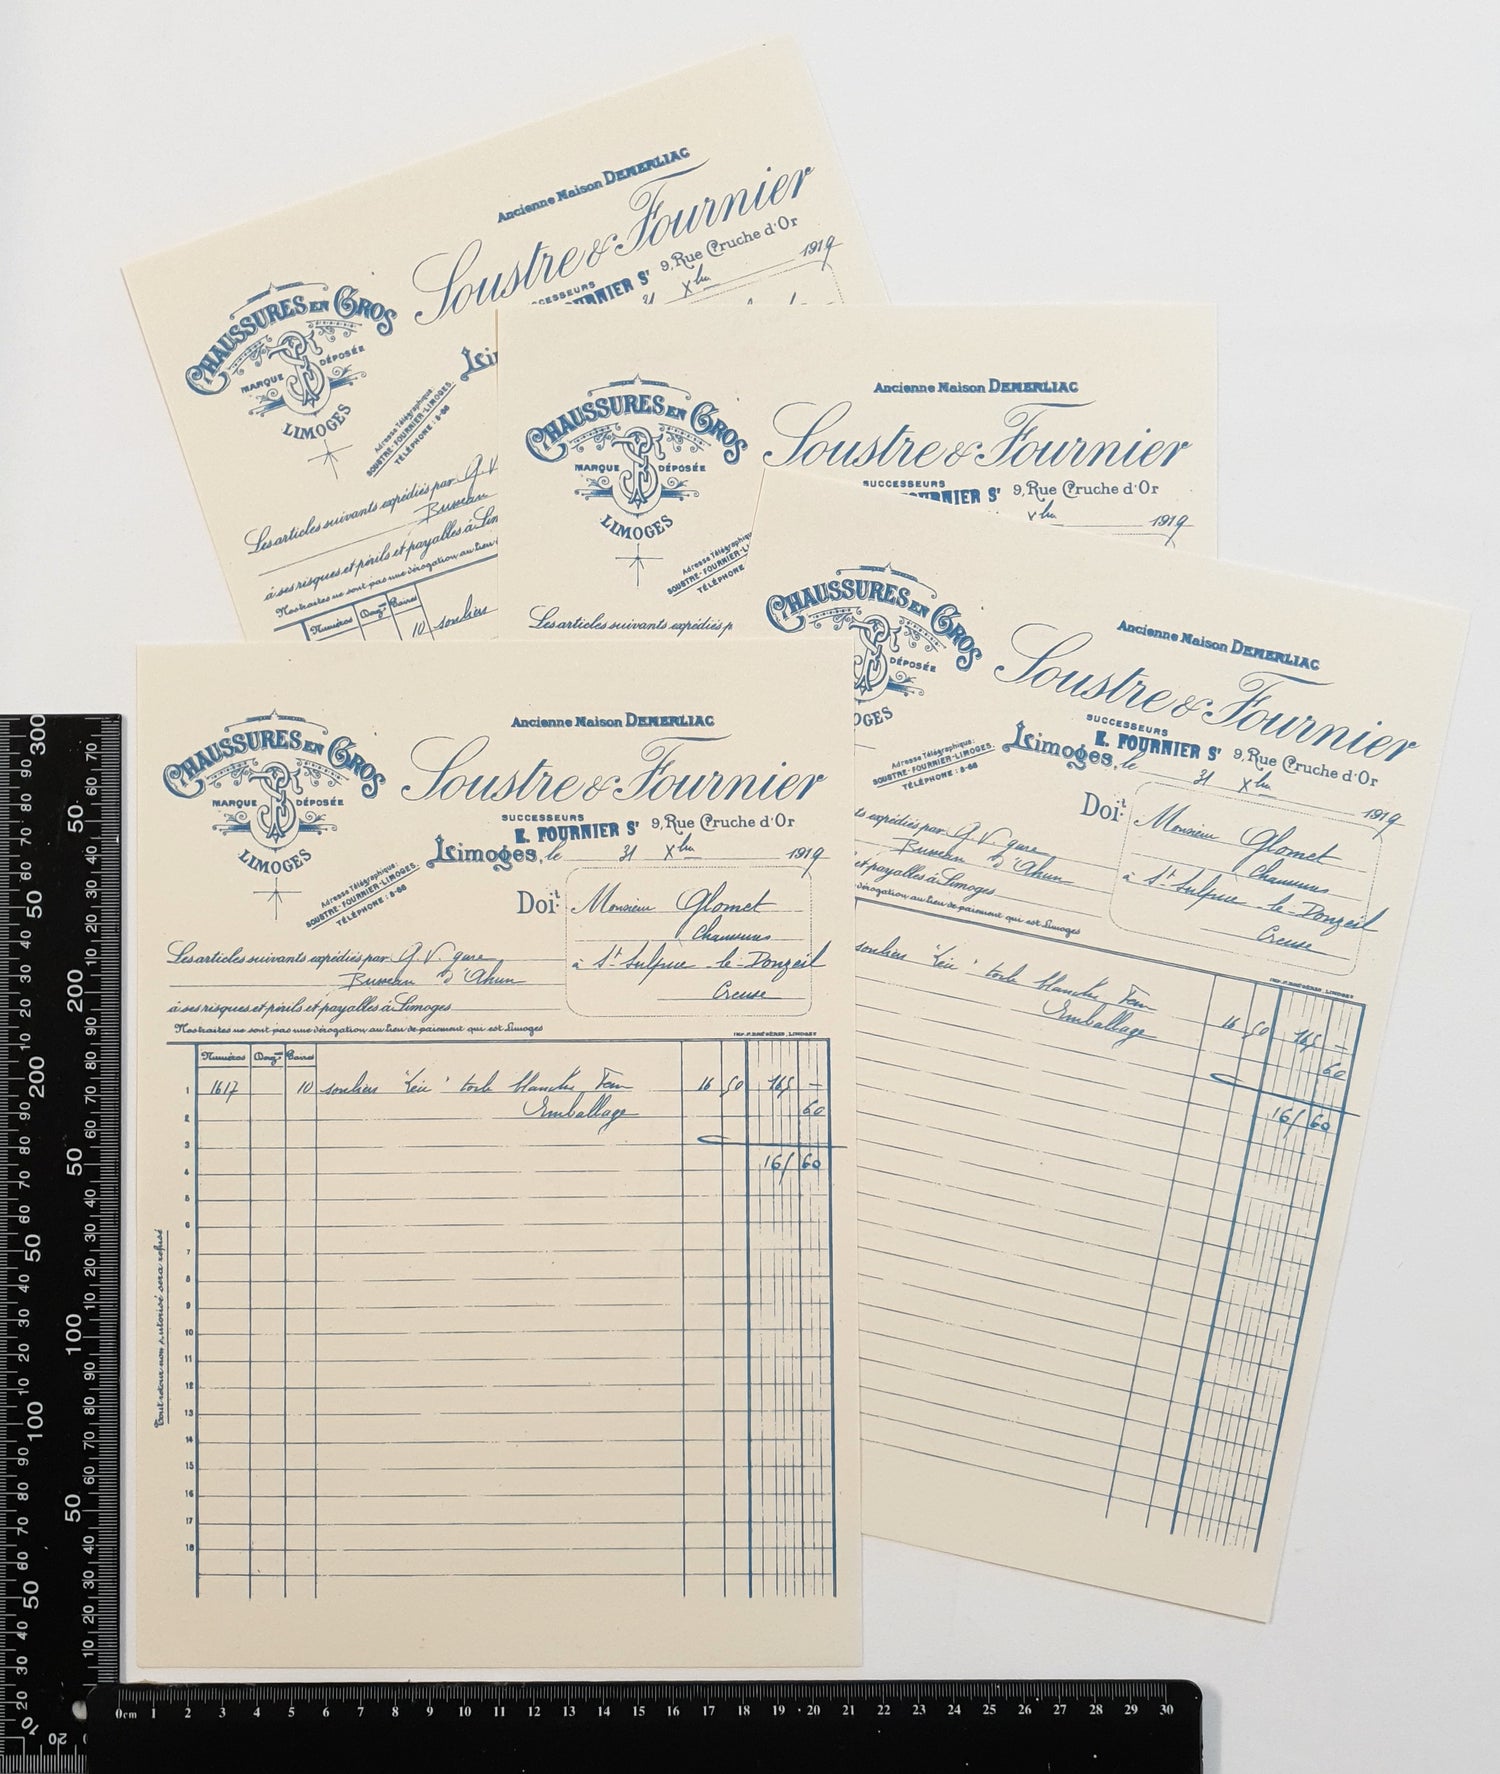 Ancienne Maison DEMERLIAC
Soustre & Fournier
SUCCESSEURS
FOURNIER Sr 9, Rue Cruche d'Or
31 Xbre 1919
CHAUSSURES EN GROS
MARQUE DÉPOSÉE
LIMOGES
Adresse Télégraphique:
SOUSTRE-FOURNIER-LIMOGES.
TÉLÉPHONE: 8-66
Les articles suivants expédiés par G. V.
Bureau
à ses risques et périls et payables à Lim
Nos traites ne sont pas une dérogation au lieu
Numéros Douz.nes Paires
10 souliers
Ancienne Maison DEMERLIAC
Soustre & Fournier
SUCCESSEURS
FOURNIER Sr 9, Rue Cruche d'Or
Xbre 1919
CHAUSSURES EN GROS
MARQUE DÉPOSÉE
LIMOGES
Adresse Télégraphique
SOUSTRE-FOURNIER-L
TÉLÉPHONE
Les articles suivants expédiés p
CHAUSSURES EN GROS
DÉPOSÉE
OGES
Ancienne Maison DEMERLIAC
Soustre & Fournier
SUCCESSEURS
E. FOURNIER Sr 9, Rue Cruche d'Or
Limoges, le 31 Xbre 1919
Adresse Télégraphique:
SOUSTRE-FOURNIER-LIMOGES.
TÉLÉPHONE: 8-66
Doit: Monsieur Glomet
Chaussures
à St Sulpice-le-Donzeil
Creuse
ts expédiés par G. V. gare
Bureau d'Ahun
et payables à Limoges
dérogation au lieu de paiement qui est Limoges
LIMOGES
souliers toile blanche 16 50 165 —
Emballage 60
165 60
CHAUSSURES EN GROS
MARQUE DÉPOSÉE
LIMOGES
Ancienne Maison DEMERLIAC
Soustre & Fournier
SUCCESSEURS
E. FOURNIER Sr 9, Rue Cruche d'Or
Limoges, le 31 Xbre 1919
Adresse Télégraphique:
SOUSTRE-FOURNIER-LIMOGES.
TÉLÉPHONE: 8-66
Doit: Monsieur Glomet
Chaussures
à St Sulpice-le-Donzeil
Creuse
Les articles suivants expédiés par G. V. gare
Bureau d'Ahun
à ses risques et périls et payables à Limoges
Nos traites ne sont pas une dérogation au lieu de paiement qui est Limoges
LIMOGES
Numéros Douz.nes Paires
1 1617 10 souliers toile blanche 16 50 165 —
2 Emballage 60
3
4 165 60
5
6
7
8
9
10
11
12
13
14
15
16
17
18
Tout retour non autorisé sera refusé
300 90 80 70 60 50 40 30 20 10 200 90 80 70 60 50 40 30 20 10 100 90 80 70 60 50 40 30 20 10
70 60 50 40 30 20 10 200 90 80 70 60 50 40 30 20 10 100 90 80 70 60 50 40 30 20 10
20
0cm 1 2 3 4 5 6 7 8 9 10 11 12 13 14 15 16 17 18 19 20 21 22 23 24 25 26 27 28 29 30